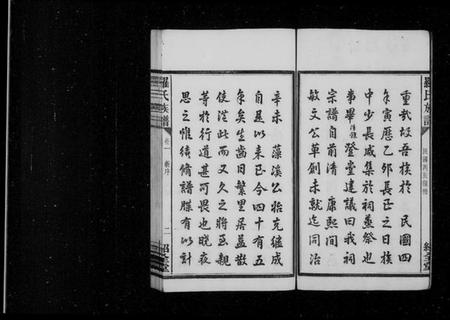 羅氏族譜
重武坂吾族於 民國四
年寅曆乙卯長至之日族
中少長咸集於祠蒸祭也
登堂建議曰我祠
宗譜自前清 康熙間
敏文公草創未就迄同治
辛未 藻溪公始克繼成
自是以來已今四十有五
年矣生齒日繁里居益散
使從此而又久之將至親
等於行道甚可畏也曉夜
思之惟脩譜牒有以計
羅氏族譜 卷一 新序 二